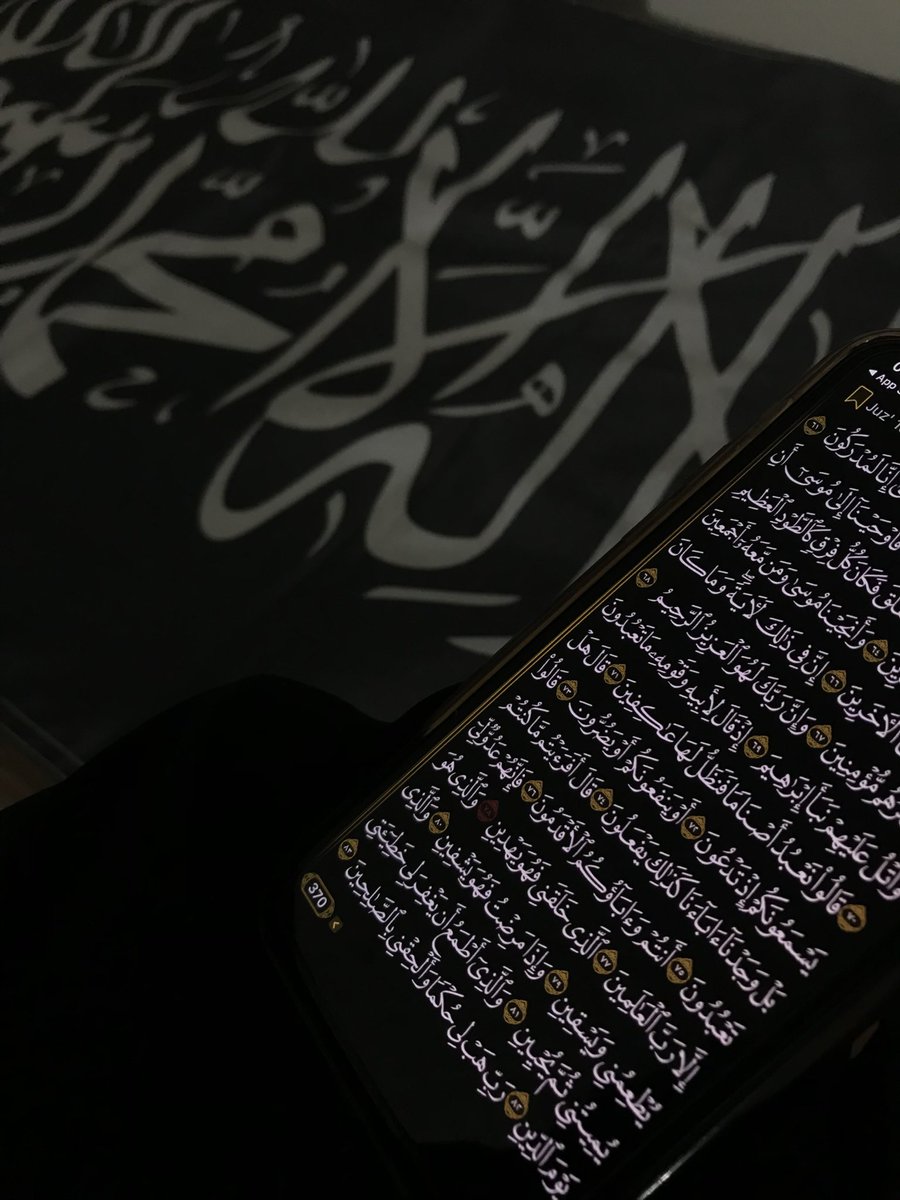 لا إله إلا الله محمد رسول الله
App
Juz'
إِنَّا لَمُدْرَكُونَ ٦١
فَأَوْحَيْنَآ إِلَىٰ مُوسَىٰٓ أَنِ
فَكَانَ كُلُّ فِرْقٍ كَٱلطَّوْدِ ٱلْعَظِيمِ
٦٤ وَأَنجَيْنَا مُوسَىٰ وَمَن مَّعَهُۥٓ أَجْمَعِينَ
ٱلْءَاخَرِينَ ٦٦ إِنَّ فِى ذَٰلِكَ لَءَايَةً ۖ وَمَا كَانَ
مُّؤْمِنِينَ ٦٧ وَإِنَّ رَبَّكَ لَهُوَ ٱلْعَزِيزُ ٱلرَّحِيمُ ٦٨
وَٱتْلُ عَلَيْهِمْ نَبَأَ إِبْرَٰهِيمَ ٦٩ إِذْ قَالَ لِأَبِيهِ وَقَوْمِهِۦ مَا تَعْبُدُونَ
٧٠ قَالُوا۟ نَعْبُدُ أَصْنَامًا فَنَظَلُّ لَهَا عَٰكِفِينَ ٧١ قَالَ هَلْ
يَسْمَعُونَكُمْ إِذْ تَدْعُونَ ٧٢ أَوْ يَنفَعُونَكُمْ أَوْ يَضُرُّونَ ٧٣ قَالُوا۟
بَلْ وَجَدْنَآ ءَابَآءَنَا كَذَٰلِكَ يَفْعَلُونَ ٧٤ قَالَ أَفَرَءَيْتُم مَّا كُنتُمْ
تَعْبُدُونَ ٧٥ أَنتُمْ وَءَابَآؤُكُمُ ٱلْأَقْدَمُونَ ٧٦ فَإِنَّهُمْ عَدُوٌّ لِّىٓ
إِلَّا رَبَّ ٱلْعَٰلَمِينَ ٧٧ ٱلَّذِى خَلَقَنِى فَهُوَ يَهْدِينِ ٧٨ وَٱلَّذِى هُوَ
يُطْعِمُنِى وَيَسْقِينِ ٧٩ وَإِذَا مَرِضْتُ فَهُوَ يَشْفِينِ ٨٠ وَٱلَّذِى
يُمِيتُنِى ثُمَّ يُحْيِينِ ٨١ وَٱلَّذِىٓ أَطْمَعُ أَن يَغْفِرَ لِى خَطِيٓـَٔتِى
يَوْمَ ٱلدِّينِ ٨٢ رَبِّ هَبْ لِى حُكْمًا وَأَلْحِقْنِى بِٱلصَّٰلِحِينَ ٨٣
370